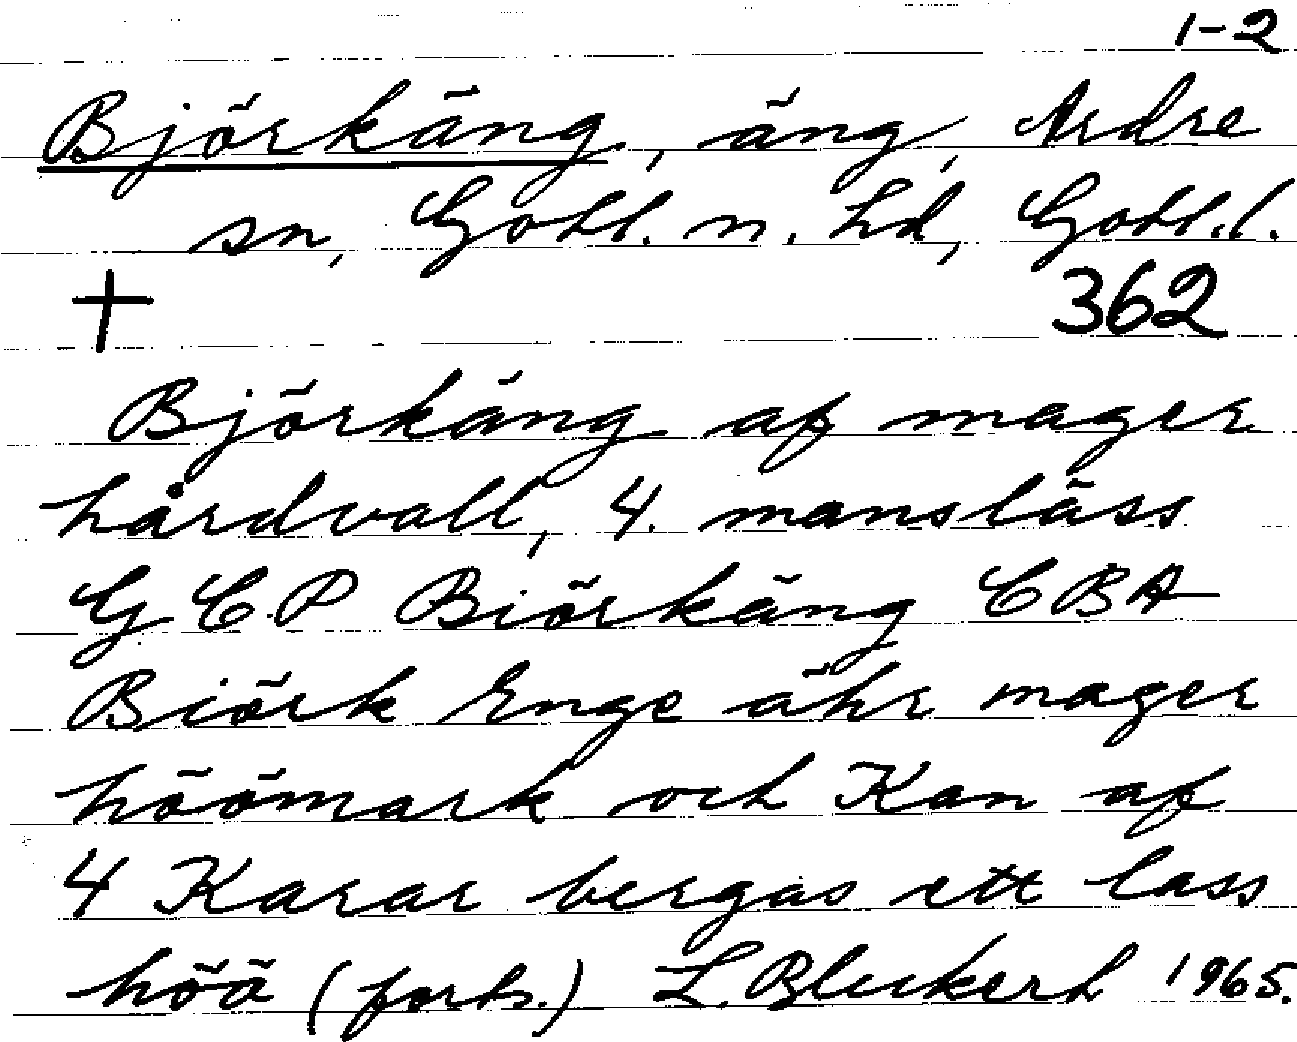 1-2
Björkäng, äng, Ardre
sn, Gotl. n. hd, Gotl. l.
† 362
Björkäng af mager
hårdvall, 4. manslass
G C.P Biörkäng C B A
Biörk Enge ähr mager
höömark och Kan af
4 Karar bergas ett lass
höö (forts.) L. Bleckert 1965.